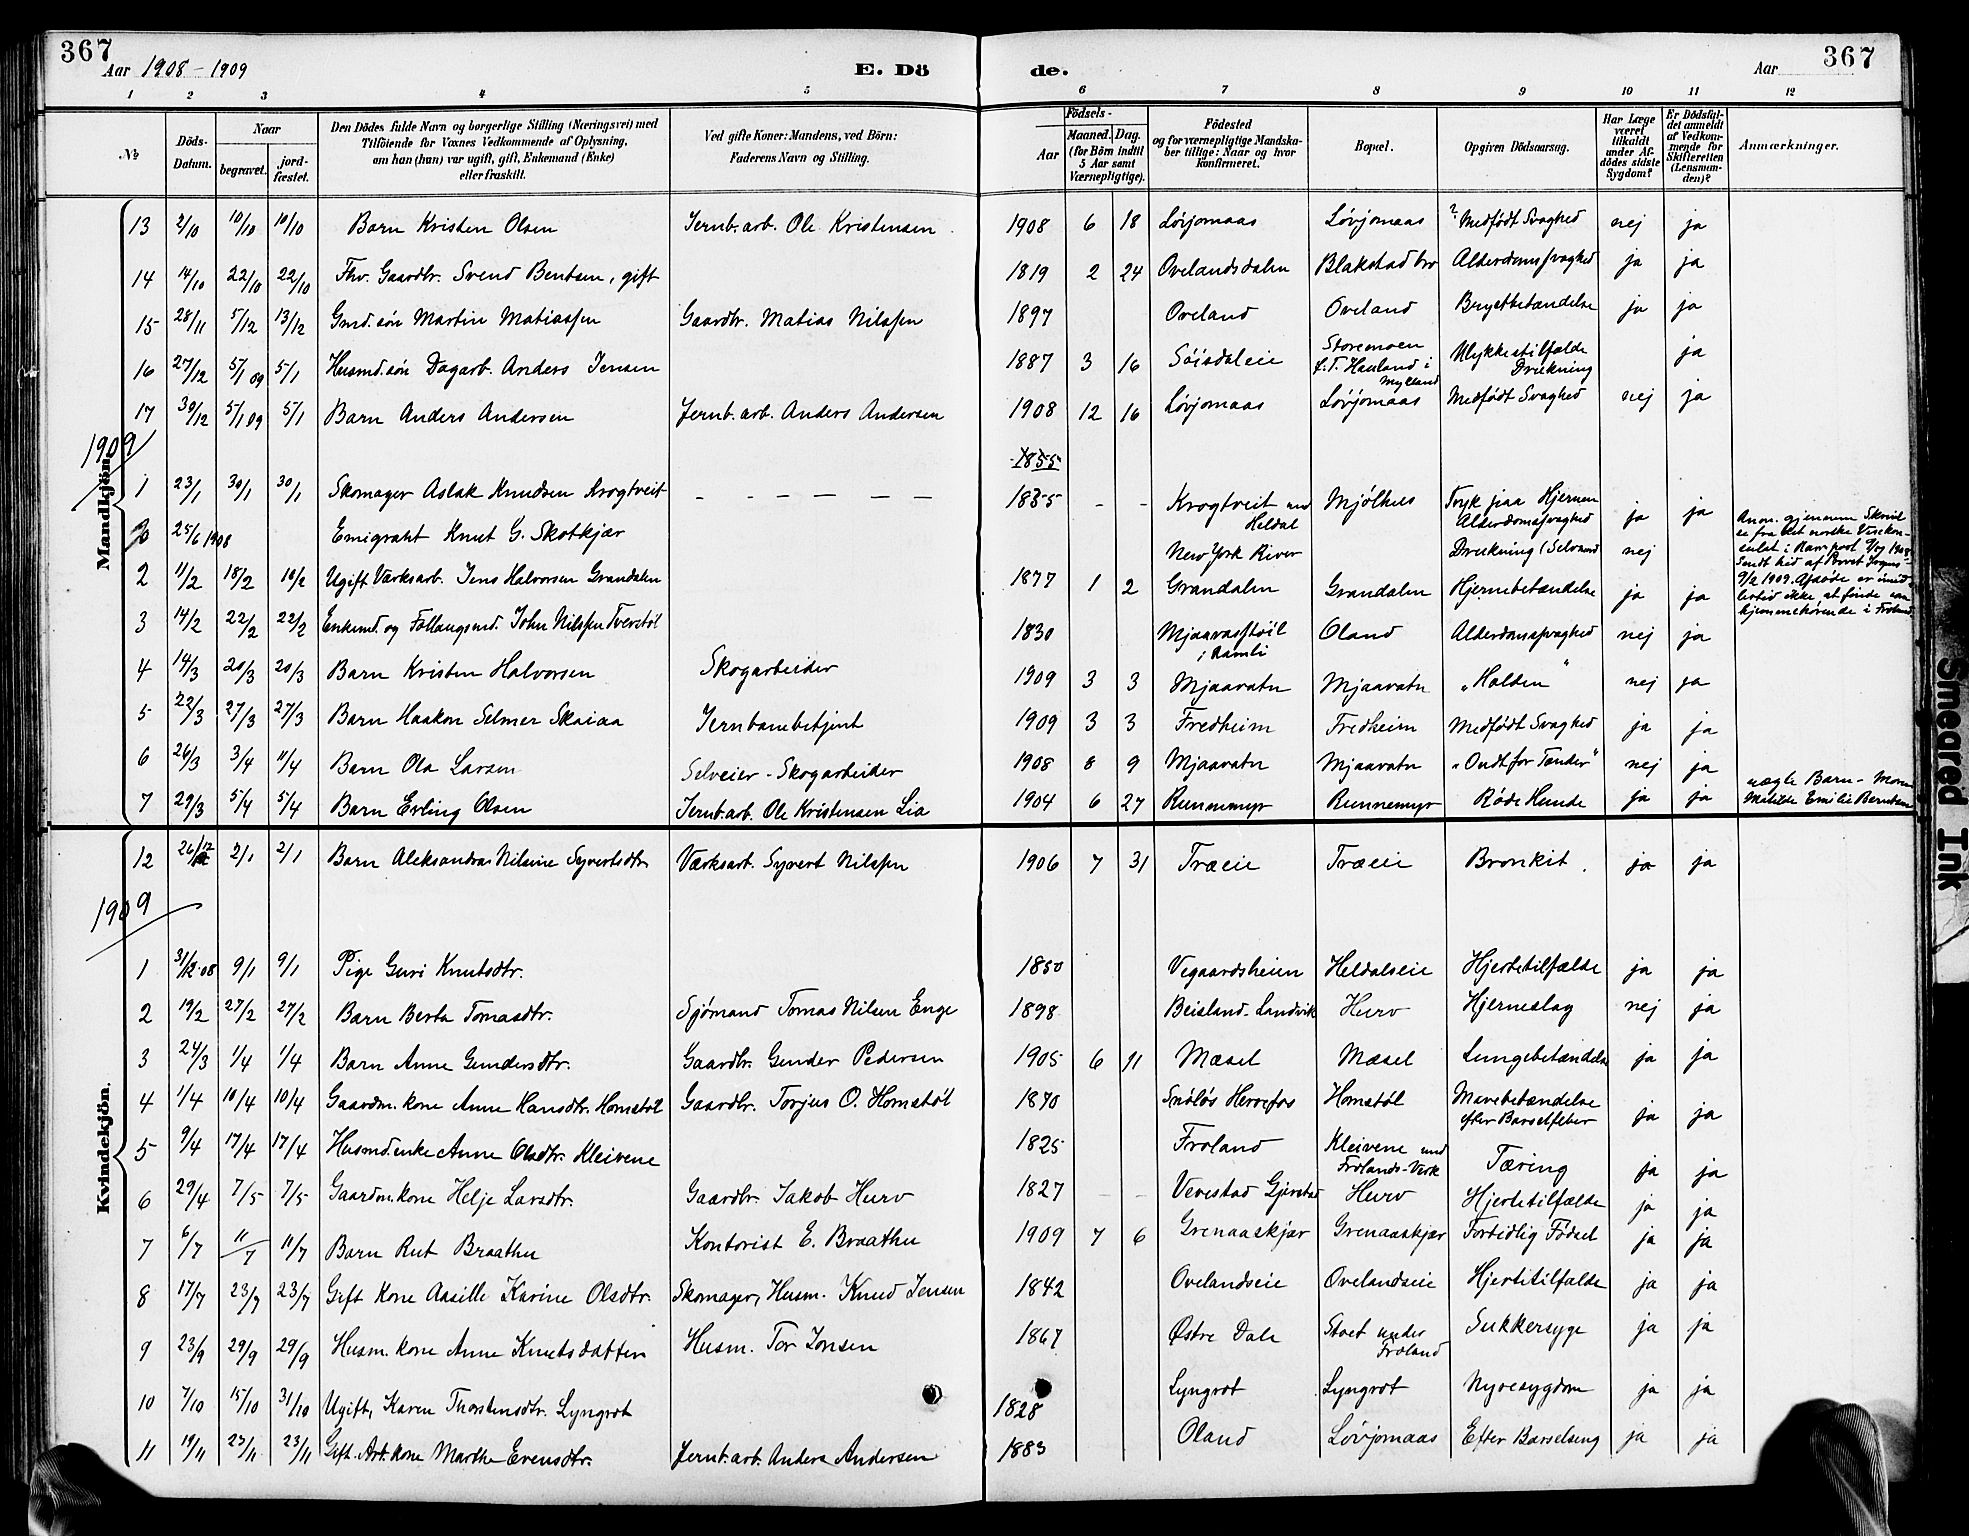 367
Aar 1908 - 1909
E. Dö
de.
Aar
367
1 2 3 4 5 6 7 8 9 10 11 12
№
Döds-Datum.
Naar
begravet.
jord-fæstet.
Den Dödes fulde Navn og borgerlige Stilling (Næringsvei) med
Tilföiende for Voxnes Vedkommende af Oplysning,
om han (hun) var ugift, gift, Enkemand (Enke)
eller fraskilt.
Ved gifte Koner: Mandens, ved Börn:
Faderens Navn og Stilling.
Födsels-
Aar
Maaned. Dag.
(for Börn indtil
5 Aar samt
Værnepligtige).
Födested
og for værnepligtige Mandska-
ber tillige: Naar og hvor
konfirmeret.
Bopæl.
Opgiven Dödsaarsag.
Har Læge
været
tilkaldt
under Af-
dödes sidste
Sygdom?
Er Dödsfal-
det anmeldt
af Vedkom-
mende for
Skifteretten
(Lensman-
den)?
Anmærkninger.
Mandkjön.
13 2/10 10/10 10/10 Barn Kristen Olsen Jernb.arb. Ole Kristensen 1908 6 18 Løvjomaas Løvjomaas ? Medfødt Svaghed nej ja
14 14/10 22/10 22/10 Fhv. Gaardbr. Svend Bentsen, gift 1819 2 24 Ovelandsdalen Blakstad bro Alderdomssvaghed ja ja
15 28/11 5/12 13/12 Gmd.søn Martin Matiassen Gaardbr. Matias Nilssen 1897 Oveland Oveland Brystbetændelse ja ja
16 27/12 5/1 09 5/1 Husmd.søn Dagarb. Anders Jensen 1887 3 16 Søisdaleie Storemoen f.T. Hauland i Mykland Ulykkestilfælde Drukning ja
17 30/12 5/1 09 5/1 Barn Anders Andersen Jernb.arb. Anders Andersen 1908 12 16 Løvjomaas Løvjomaas Medfødt Svaghed nej ja
1909
1855
1 23/1 30/1 30/1 Skomager Aslak Knudsen Krogtveit - - - - - - 1835 - - Krogtveit und Heldal Mjølhus Tryk paa Hjernen Alderdomssvaghed ja ja
25/6 1908 Emigrant Knut G. Skotkjær New York River Drukning (Selvmord nej
2 11/2 18/2 18/2 Ugift Værksarb. Jens Halvorsen Grandalen 1877 1 2 Grandalen Grandalen Hjernebetændelse ja ja
3 14/2 22/2 22/2 Enkemd. og Follaugsmd. John Nilssen Tveretøl 1830 Mjaavasstøil i Ramli Oland Alderdomssvaghed nej ja
4 14/3 20/3 20/3 Barn Kristen Halvorsen Skogarbeider 1909 3 3 Mjaavatn Mjaavatn "Holden" nej ja
5 22/3 27/3 27/3 Barn Haakon Selmer Skaiaa Jernbanebetjent 1909 3 3 Fredheim Fredheim Medfødt Svaghed ja ja
6 26/3 3/4 11/4 Barn Ola Larsen Selveier - Skogarbeider 1908 8 9 Mjaavatn Mjaavatn "Ondt for Tænder" nej ja
7 29/3 5/4 5/4 Barn Erling Olsen Jernb.arb. Ole Kristensen Lia 1904 6 27 Runnemyr Runnemyr Røde Hunde ja ja uægte Barn - Moren Matilde Emilie Berntsen
Kvindekjön.
12 26/12 2/1 2/1 Barn Aleksandra Nilsine Syvertsdtr. Værksarb. Syvert Nilssen 1906 7 31 Træeie Træeie Bronkit. ja ja
1909
1 31/12-08 9/1 9/1 Pige Guri Knutsdtr. 1850 Vegaardsheien Heldalseie Hjertetilfælde ja ja
2 19/2 27/2 27/2 Barn Berta Tomasdtr. Sjømand Tomas Nilsen Enge 1898 Beisland - Landvik Hurv Hjerneslag nej ja
3 24/3 1/4 1/4 Barn Anne Gundersdtr. Gaardbr. Gunder Pedersen 1905 6 11 Mæsel Mæsel Lungebetændelse ja ja
4 1/4 10/4 10/4 Gaardm.kone Anne Hansdtr. Homstøl Gaardbr. Torjus O. Homstøl 1870 Snøløs Herrefos Homstøl Mavebetændelse efter Barselfeber ja ja
5 9/4 17/4 17/4 Husmd.enke Anne Olsdtr. Kleivene 1825 Froland Kleivene und Frolands-Verk Tæring ja ja
6 29/4 7/5 7/5 Gaardm.kone Helje Larsdtr. Gaardbr. Jakob Hurv 1827 - - Vevestad Gjerstad Hurv Hjertetilfælde ja ja
7 6/7 11/7 11/7 Barn Rut Braathen Kontorist E. Braathen 1909 7 6 Grenaaskjær Grenaaskjær Fortidlig Fødsel ja ja
8 17/7 23/7 23/7 Gift Kone Aasille Karine Olsdtr. Skomager, Husm. Knud Jensen 1842 Ovelandseie Ovelandseie Hjertetilfælde ja ja
9 23/9 29/9 29/9 Husm. kone Anne Knutsdatter Husm. Tor Jonsen 1867 Østre Dale Stoet under Froland Sukkersyge ja ja
10 7/10 15/10 31/10 Ugift, Karen Thorstensdtr. Lyngrot 1828 Lyngrot Lyngrot Nyresygdom ja ja
11 19/11 23/11 23/11 Gift. Arb.kone Marthe Evensdtr. Jernb.arb. Anders Andersen 1883 Oland Løvjomaas Efter Barselseng ja ja
Smeared Ink